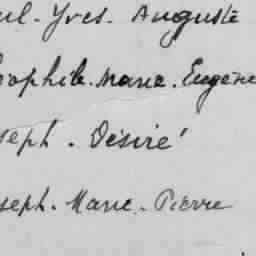 ul. Yves. Auguste
éophile. Marie. Eugène
seph. Désiré
seph. Marie. Pierre